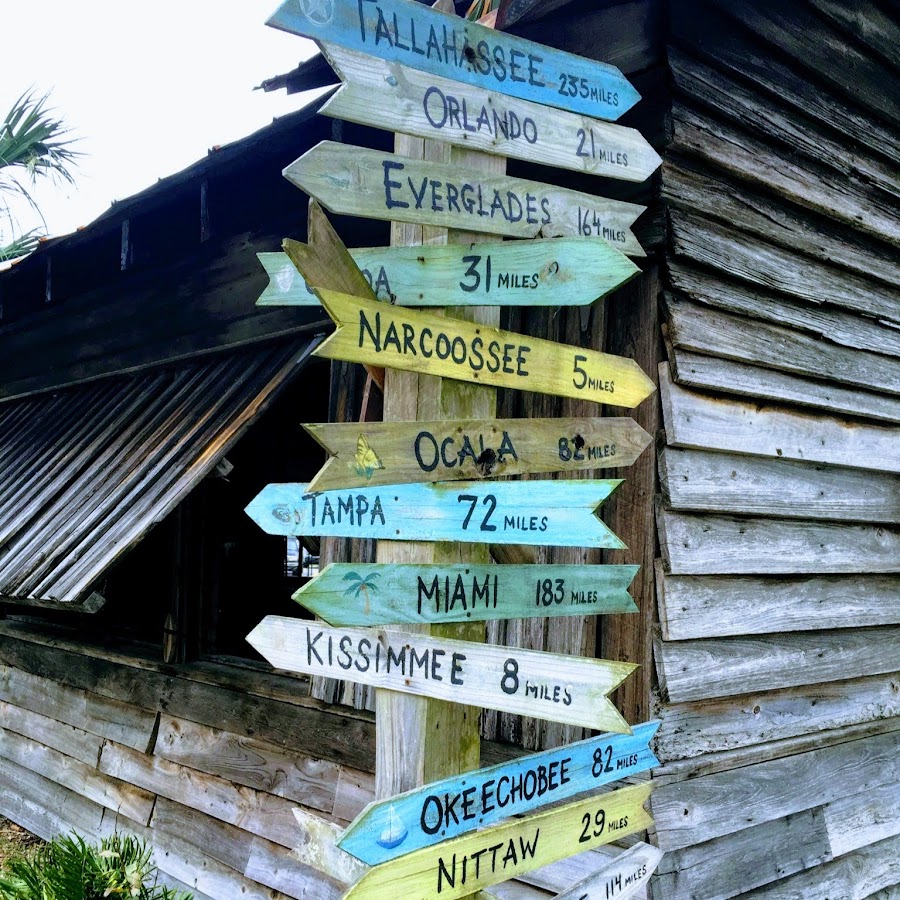 TALLAHASSEE 235 MILES
ORLANDO 21 MILES
EVERGLADES 164 MILES
31 MILES
NARCOOSSEE 5 MILES
OCALA 82 MILES
TAMPA 72 MILES
MIAMI 183 MILES
KISSIMMEE 8 MILES
OKEECHOBEE 82 MILES
NITTAW 29 MILES
114 MILES